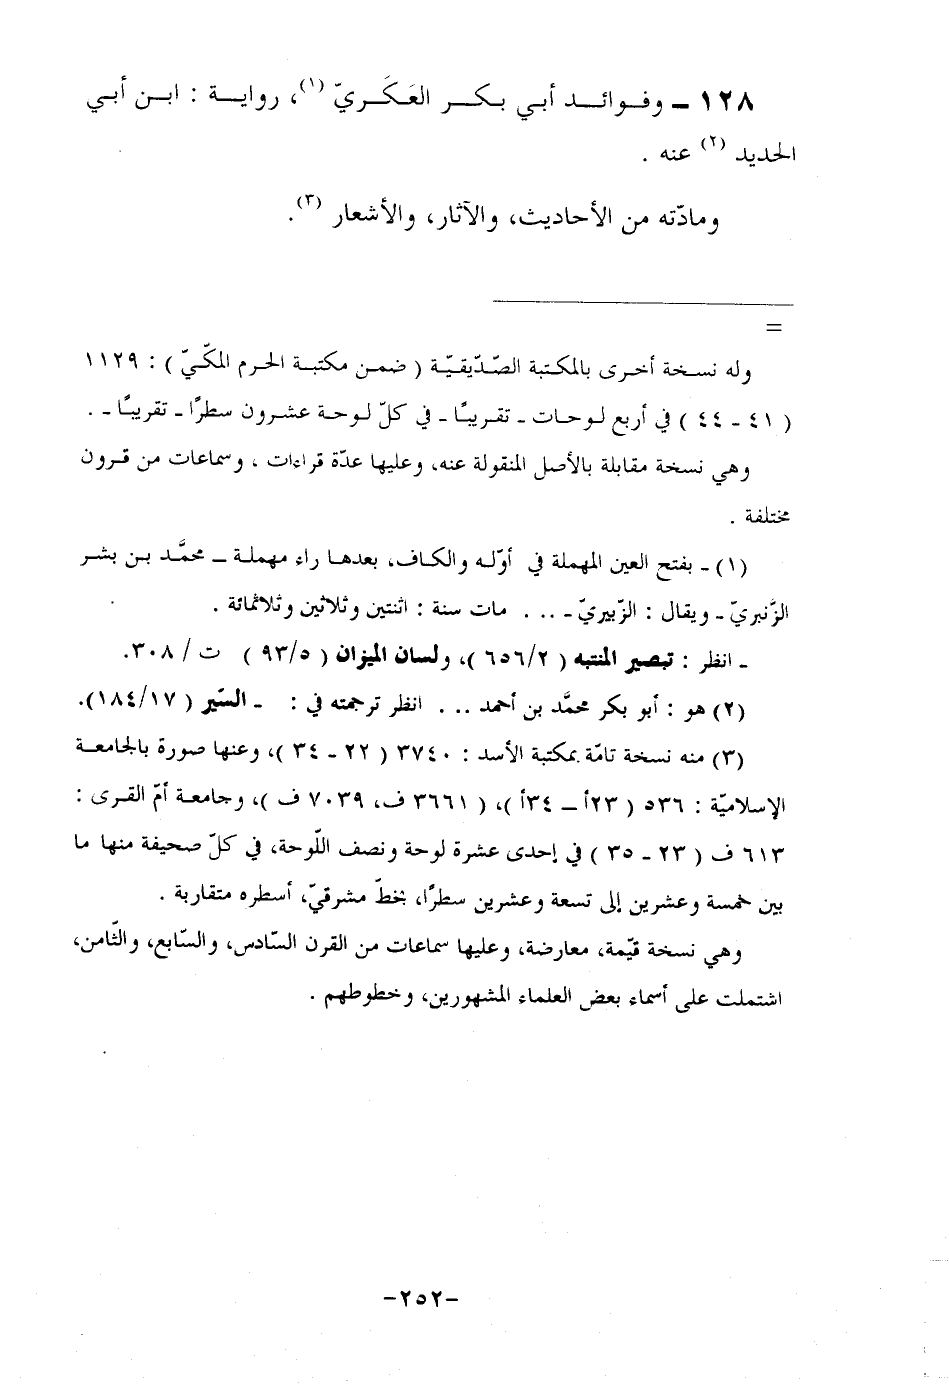 ١٢٨ ـ وفوائد أبي بكر العَكَريّ (١)، رواية : ابن أبي
الحديد (٢) عنه .
ومادّته من الأحاديث، والآثار، والأشعار (٣).
=
وله نسخة أخرى بالمكتبة الصّدّيقيّة ( ضمن مكتبة الحرم المكّيّ ) : ١١٢٩
( ٤١ ـ ٤٤ ) في أربع لوحات ـ تقريبًا ـ في كلّ لوحة عشرون سطرًا ـ تقريبًا ـ .
وهي نسخة مقابلة بالأصل المنقولة عنه، وعليها عدّة قراءات ، وسماعات من قرون
مختلفة .
(١) ـ بفتح العين المهملة في أوّله والكاف، بعدها راء مهملة ـ محمَّد بن بشر
الزَّنبريّ ـ ويقال : الزّبيريّ ـ ... مات سنة : اثنتين وثلاثين وثلاثمائة .
ـ انظر : تبصير المنتبه ( ٦٥٦/٢ )، ولسان الميزان ( ٩٣/٥ ) ت / ٣٠٨.
(٢) هو : أبو بكر محمَّد بن أحمد ... . انظر ترجمته في : ـ السّير ( ١٨٤/١٧).
(٣) منه نسخة تامّة بمكتبة الأسد : ٣٧٤٠ ( ٢٢ ـ ٣٤ )، وعنها صورة بالجامعة
الإسلاميّة : ٥٣٦ ( ٢٣أ ـ ٣٤أ )، ( ٣٦٦١ ف، ٧٠٣٩ ف )، وجامعة أمّ القرى :
٦١٣ ف ( ٢٣ ـ ٣٥ ) في إحدى عشرة لوحة ونصف اللّوحة، في كلّ صحيفة منها ما
بين خمسة وعشرين إلى تسعة وعشرين سطرًا، بخطّ مشرقيّ، أسطره متقاربة .
وهي نسخة قيّمة، معارضة، وعليها سماعات من القرن السّادس، والسّابع، والثّامن،
اشتملت على أسماء بعض العلماء المشهورين، وخطوطهم .
-٢٥٢-